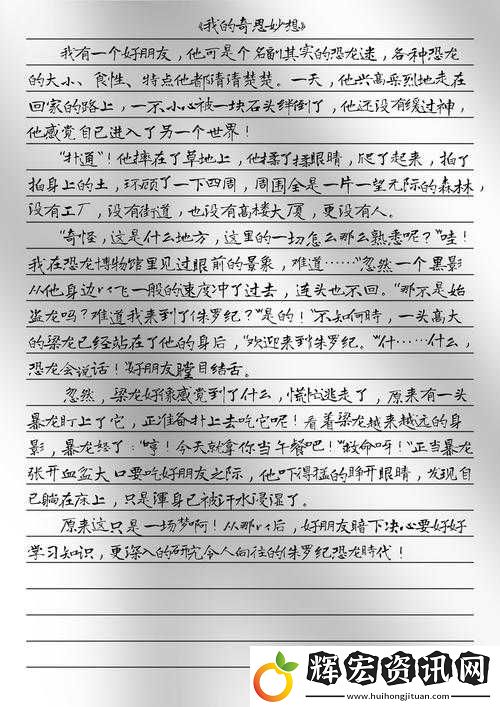 《我的奇思妙想》
我有一个好朋友，他可是个名副其实的恐龙迷，各种恐龙
的大小、食性、特点他都清清楚楚。一天，他兴高采烈地走在
回家的路上，一不小心被一块石头绊倒了，他还没有缓过神，
他感觉自己进入了另一个世界！
“扑通”！他摔在了草地上，他揉了揉眼睛，爬了起来，拍了
拍身上的土，环顾了一下四周，周围全是一片一望无际的森林，
没有工厂，没有街道，也没有高楼大厦，更没有人。
“奇怪，这是什么地方，这里的一切怎么那么熟悉呢？”哇！
我在恐龙博物馆里见过眼前的景象，难道……”忽然一个黑影
从他身边以飞一般的速度冲了过去，连头也不回。“那不是始
盗龙吗？难道我来到了侏罗纪？”“是的！”不知何時，一头高大
的梁龙已经站在了他的身后，“欢迎来到侏罗纪。”“什……什么，
恐龙会说话！”好朋友瞠目结舌。
忽然，梁龙好像感觉到了什么，慌忙逃走了，原来有一头
暴龙盯上了它，正准备扑上去吃它呢！看着梁龙越来越远的身
影，暴龙怒了：“哼！今天就拿你当午餐吧！”“救命呀！”正当暴龙
张开血盆大口要吃好朋友之际，他吓得猛的睁开眼睛，发现自
己躺在床上，只是渾身已被汗水浸湿了。
原来这只是一场梦啊！从那以后，好朋友暗下决心要好好
学习知识，更深入的研究令人向往的侏罗纪恐龙時代！
辉宏资讯网
www.huihongjituan.com